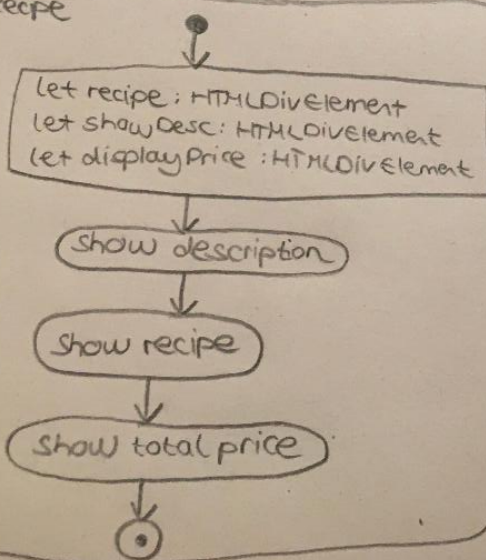 let recipe: HTMLDivElement
let showDesc: HTMLDivElement
let displayPrice: HTMLDivElement
show description
show recipe
show total price